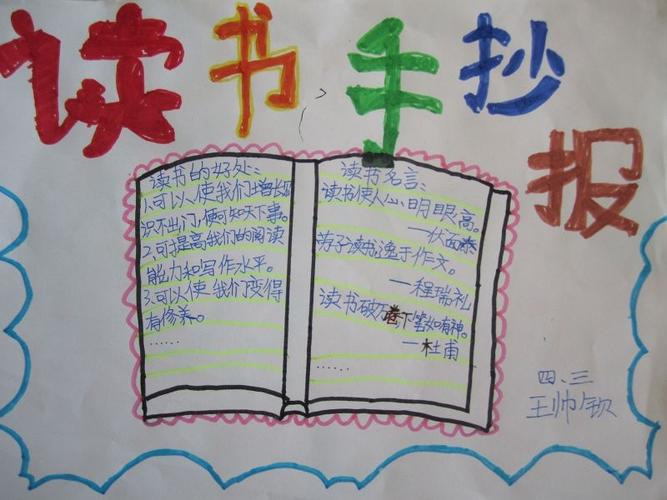 读书手抄报
读书的好处：
1.可以使我们增长知
识不出门，便可知天下事。
2.可提高我们的阅读
能力和写作水平。
3.可以使我们变得
有修养。
……
读书名言：
读书使人心明眼亮。
—伏尔泰
劳于读书逸于作文。
—程瑞礼
读书破万卷下笔如有神。
—杜甫
……
四、三
王帅钦